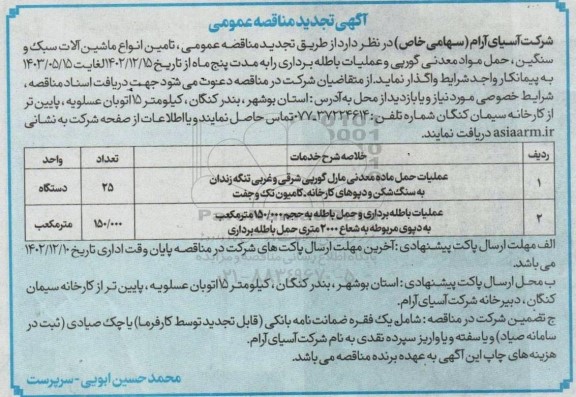 آگهی تجدید مناقصه عمومی
شرکت آسیای آرام (سهامی خاص) در نظر دارد از طریق تجدید مناقصه عمومی، تامین انواع ماشین آلات سبک و
سنگین، حمل مواد معدنی گورپی و عملیات باطله برداری را به مدت پنج ماه از تاریخ ۱۴۰۲/۱۲/۱۵ لغایت ۱۴۰۳/۰۵/۱۵
به پیمانکار واجد شرایط واگذار نماید. از متقاضیان شرکت در مناقصه دعوت می شود جهت دریافت اسناد مناقصه،
شرایط خصوصی مورد نیاز و یا بازدید از محل به آدرس: استان بوشهر، بندر کنگان، کیلومتر ۱۵ اتوبان عسلویه، پایین تر
از کارخانه سیمان کنگان شماره تلفن: ۳۷۲۲۴۶۱۴-۰۷۷ تماس حاصل نمایند و یا اطلاعات از صفحه شرکت به نشانی
asiaarm.ir دریافت نمایند.
ردیف خلاصه شرح خدمات تعداد واحد
۱ عملیات حمل ماده معدنی مارل گورپی شرقی و غربی تنگه زندان
به سنگ شکن و دپوهای کارخانه-کامیون تک و جفت ۲۵ دستگاه
۲ عملیات باطله برداری و حمل باطله به حجم ۱۵۰/۰۰۰ مترمکعب
به دپوی مربوطه به شعاع ۲۰۰۰ متری حمل باطله برداری ۱۵۰/۰۰۰ مترمکعب
الف مهلت ارسال پاکت پیشنهادی: آخرین مهلت ارسال پاکت های شرکت در مناقصه پایان وقت اداری تاریخ ۱۴۰۲/۱۲/۱۰
می باشد.
ب محل ارسال پاکت پیشنهادی: استان بوشهر، بندر کنگان، کیلومتر ۱۵ اتوبان عسلویه، پایین تر از کارخانه سیمان
کنگان، دبیرخانه شرکت آسیای آرام.
ج تضمین شرکت در مناقصه: شامل یک فقره ضمانت نامه بانکی (قابل تجدید توسط کارفرما) یا چک صیادی (ثبت در
سامانه صیاد) و یا سفته و یا واریز سپرده نقدی به نام شرکت آسیای آرام.
هزینه های چاپ این آگهی به عهده برنده مناقصه می باشد.
محمد حسین ابویی - سرپرست